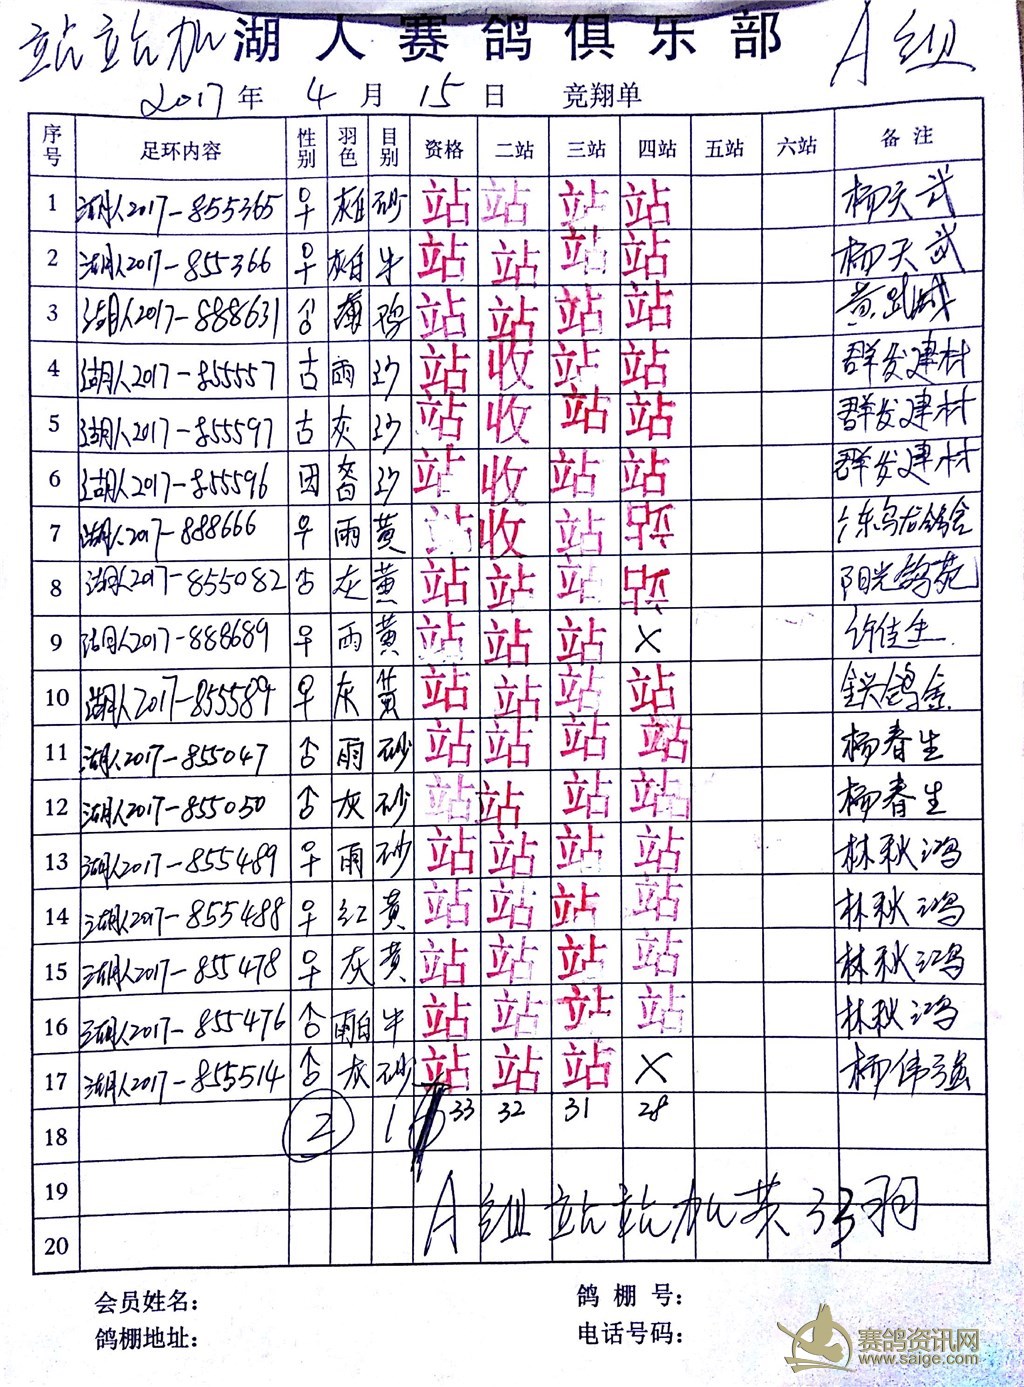 站站加 湖人赛鸽俱乐部 A组
2017年 4月 15日 竞翔单
序号 足环内容 性别 羽色 目别 资格 二站 三站 四站 五站 六站 备注
1 湖人2017-855365 早 灰白 砂 站 站 站 站 杨天武
2 湖人2017-855366 早 灰白 牛 站 站 站 站 杨天武
3 湖人2017-888631 站 站 站 站
4 湖人2017-855557 古 雨 沙 站 收 站 站 群发建材
5 湖人2017-855597 古 灰 沙 站 收 站 站 群发建材
6 湖人2017-855596 沙 站 收 站 站 群发建材
7 湖人2017-888666 ♀ 雨 黄 站 收 站
8 湖人2017-855082 灰 黄 站 站 站 阳光鸽苑
9 湖人2017-888689 ♀ 雨 黄 站 站 站 × 许佳生
10 湖人2017-855589 ♀ 灰 黄 站 站 站 站
11 湖人2017-855047 ♂ 雨 砂 站 站 站 站 杨春生
12 湖人2017-855050 ♂ 灰 砂 站 站 站 站 杨春生
13 湖人2017-855489 ♀ 雨 砂 站 站 站 站 林秋鸿
14 湖人2017-855488 ♀ 红 黄 站 站 站 站 林秋鸿
15 湖人2017-855478 ♀ 灰 黄 站 站 站 站 林秋鸿
16 湖人2017-855476 ♂ 雨白 牛 站 站 站 站 林秋鸿
17 湖人2017-855514 ♂ 灰 砂 站 站 站 × 杨伟强
18 2 1 33 32 31 28
19
A组站站加共33羽
20
会员姓名： 鸽棚号：
鸽棚地址： 电话号码：
赛鸽资讯网
www.saige.com